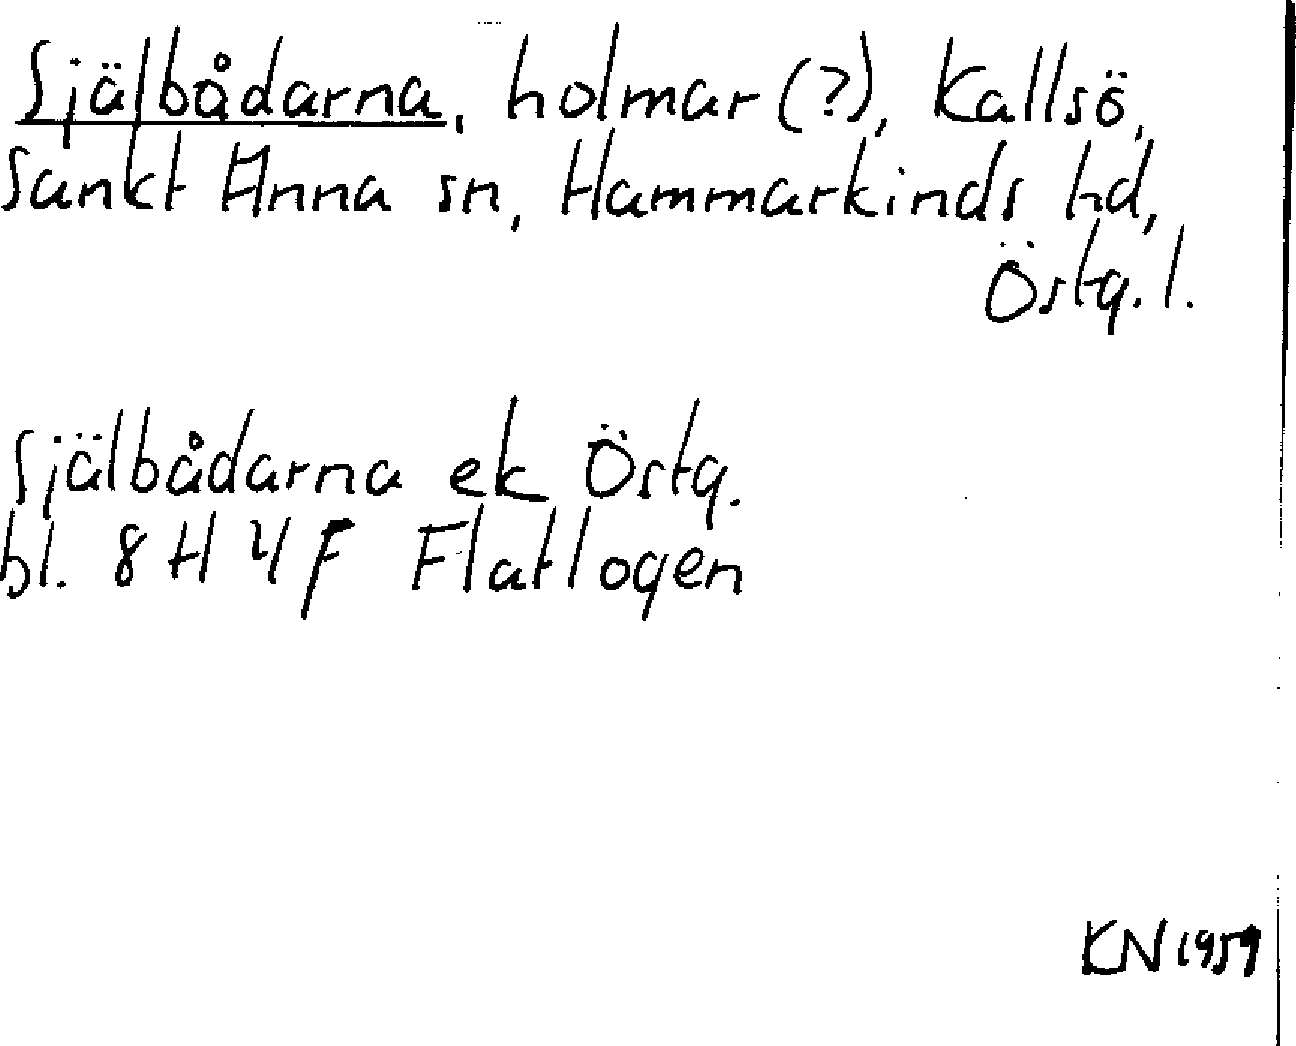 Själbådarna, holmar (?), Kallsö,
Sankt Anna sn, Hammarkinds hd,
Östg. l.
Själbådarna ek Östg.
bl. 8H 4F Flatlogen
KN 1959